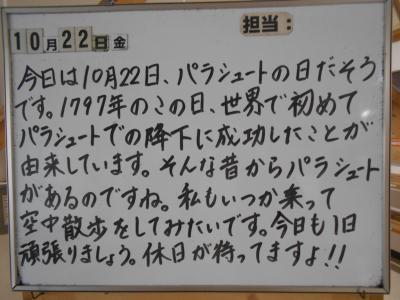 10月22日金 担当:
今日は10月22日、パラシュートの日だそう
です。1797年のこの日、世界で初めて
パラシュートでの降下に成功したことが
由来しています。そんな昔からパラシュート
があるのですね。私もいつか乗って
空中散歩をしてみたいです。今日も1日
頑張りましょう。休日が待ってますよ!!